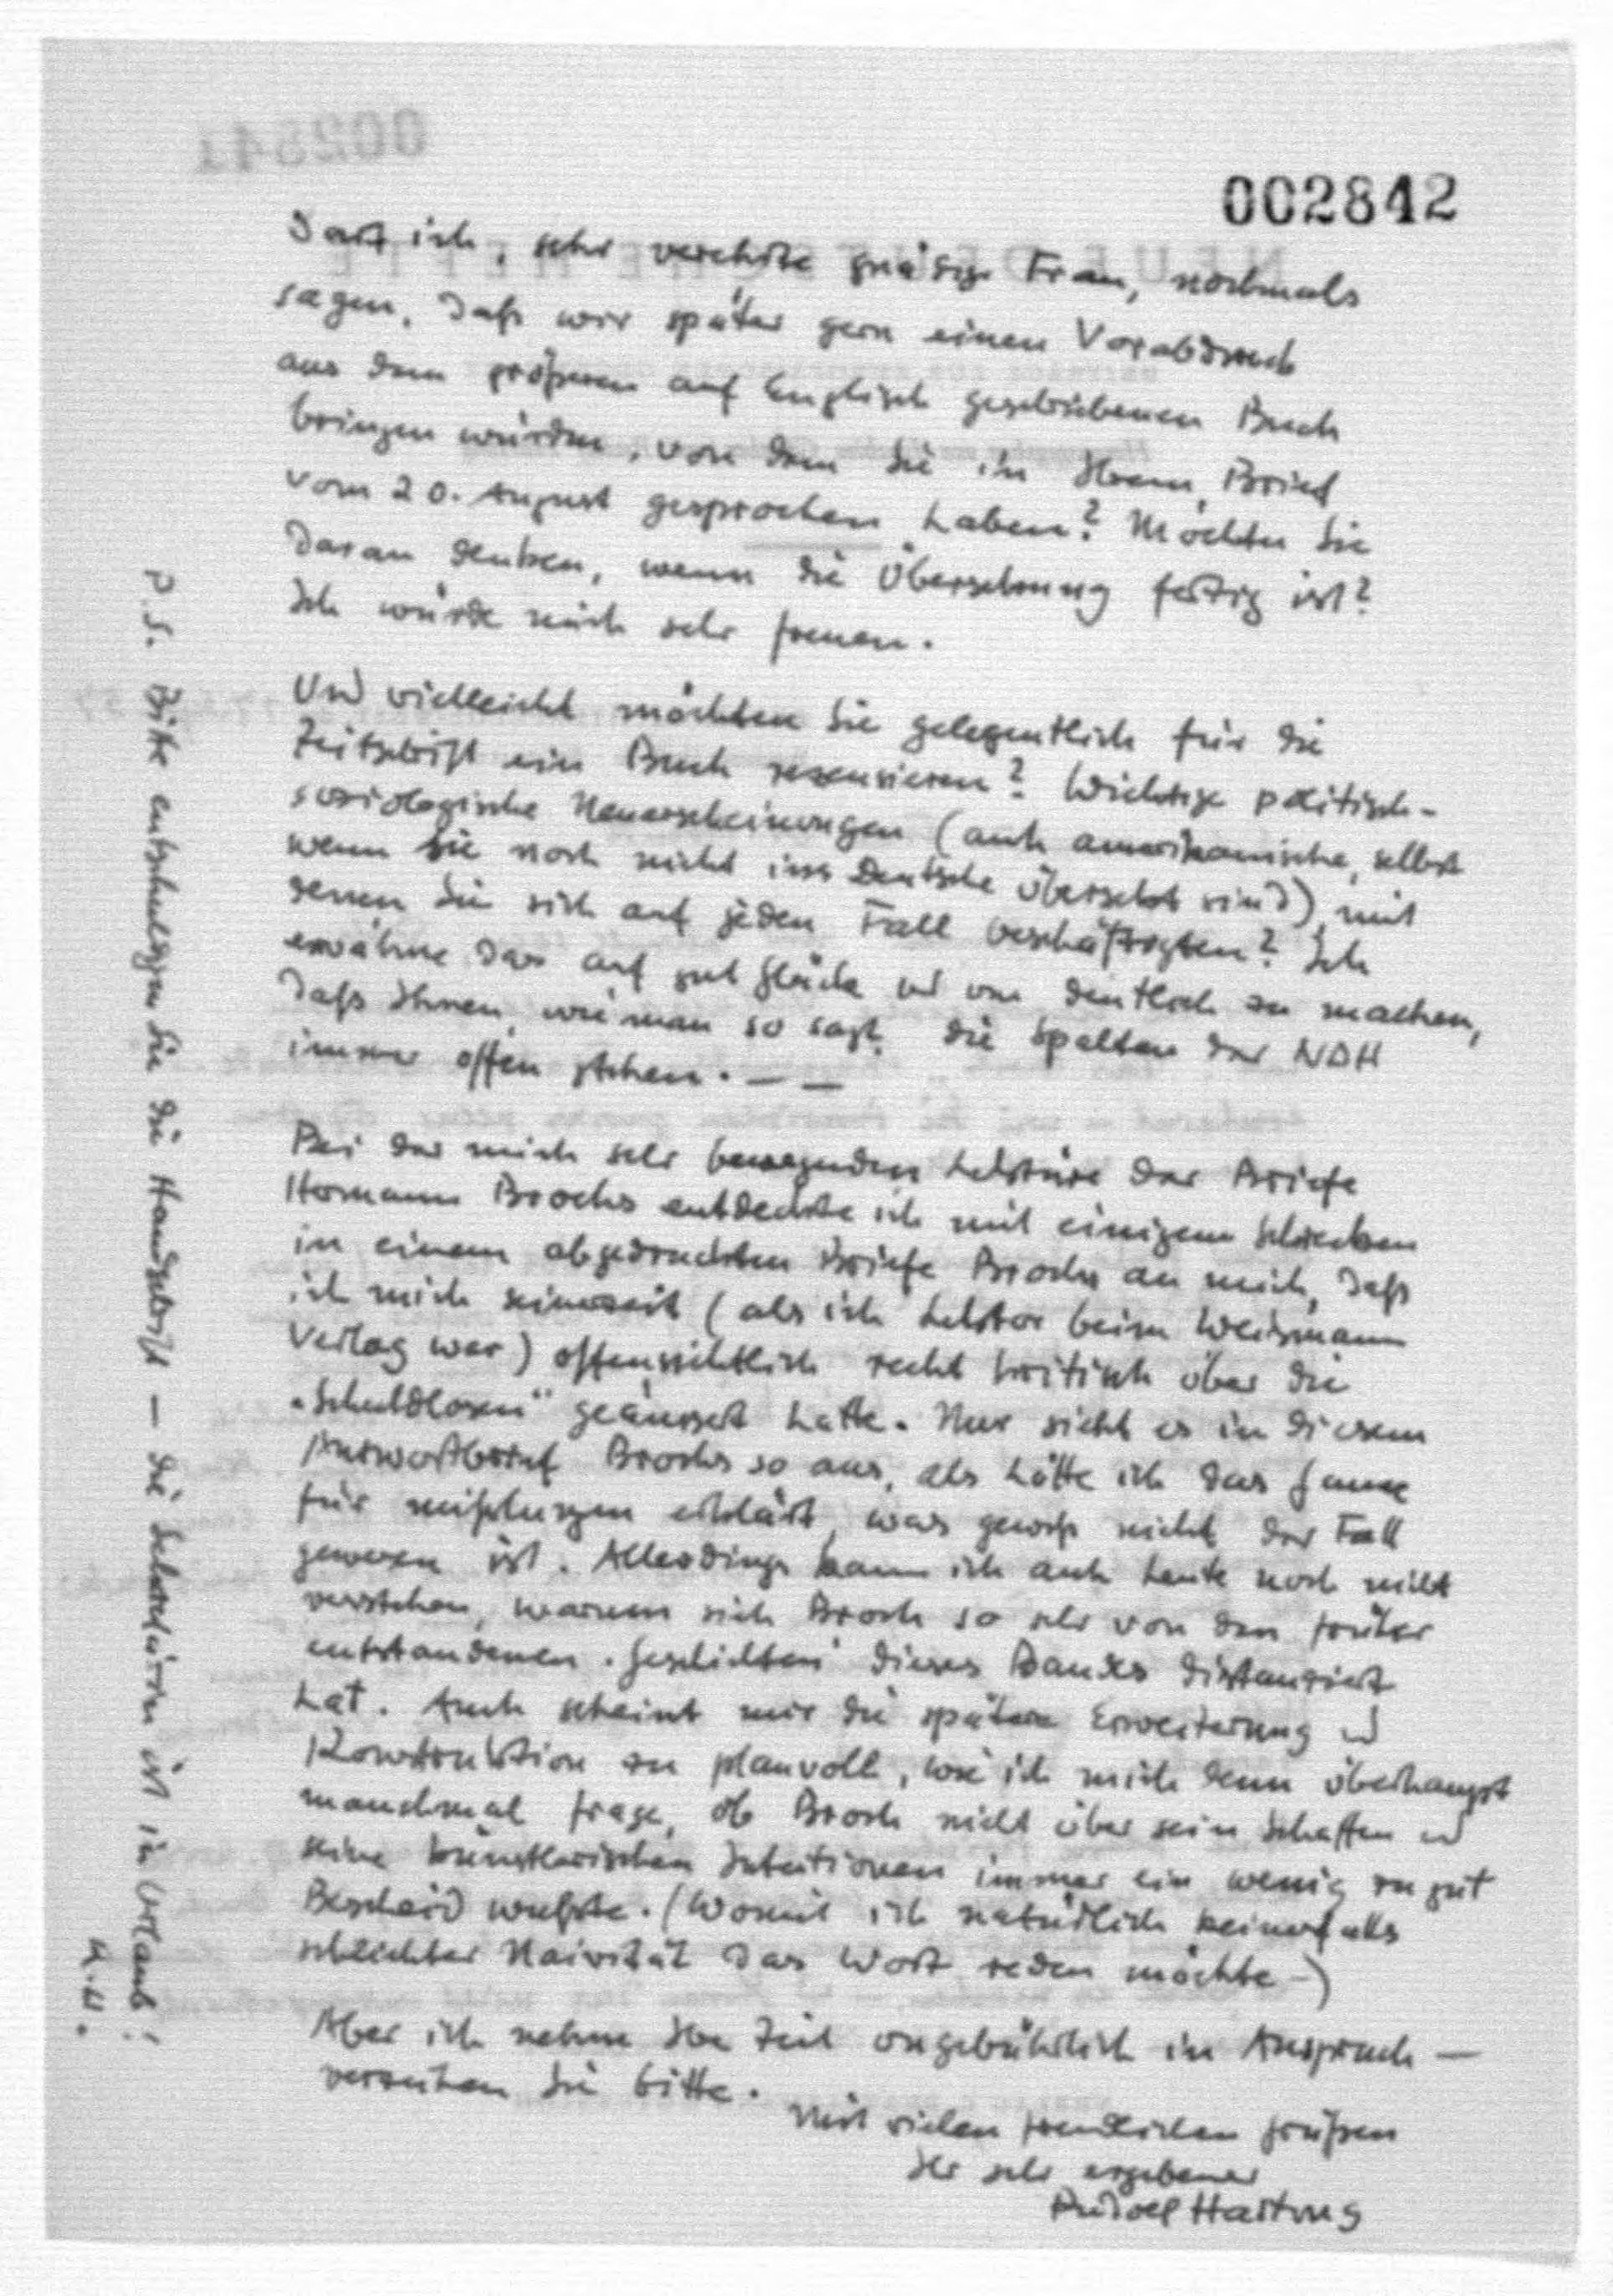 002842
Darf ich, sehr verehrte gnädige Frau, nochmals
sagen, daß wir später gern einen Vorabdruck
aus dem größeren auf Englisch geschriebenen Buch
bringen würden, von dem Sie in Ihrem Brief
vom 20. August gesprochen haben? Möchten Sie
daran denken, wenn die Übersetzung fertig ist?
Ich würde mich sehr freuen.
Und vielleicht möchten Sie gelegentlich für die
Zeitschrift ein Buch rezensieren? Wichtige politisch-
soziologische Neuerscheinungen (auch amerikanische, selbst
wenn sie noch nicht ins Deutsche übersetzt sind), mit
denen Sie sich auf jeden Fall beschäftigten? Ich
erwähne das auf gut Glück und um deutlich zu machen,
daß Ihnen, wie man so sagt, die Spalten der NDH
immer offen stehen. — —
Bei der mich sehr bewegenden Lektüre der Briefe
Hermann Brochs entdeckte ich mit einigem Schrecken
in einem abgedruckten Briefe Brochs an mich, daß
ich mich seinerzeit (als ich Lektor beim Weismann
Verlag war) offensichtlich recht kritisch über die
„Schuldlosen" geäussert hatte. Nur sieht es in diesem
Antwortbrief Brochs so aus, als hätte ich das Ganze
für mißlungen erklärt, was gewiß nicht der Fall
gewesen ist. Allerdings kann ich auch heute noch nicht
verstehen, warum sich Broch so sehr von den früher
entstandenen „Geschichten" dieses Bandes distanziert
hat. Auch scheint mir die spätere Erweiterung und
Konstruktion zu planvoll, wie ich mich denn überhaupt
manchmal frage, ob Broch nicht über sein Schaffen und
seine künstlerischen Intentionen immer ein wenig zu gut
Bescheid wußte. (Womit ich natürlich keinesfalls
schlichter Naivität das Wort reden möchte –)
Aber ich nehme Ihre Zeit ungebührlich in Anspruch —
verzeihen Sie bitte.
Mit vielen freundlichen Grüßen
Ihr sehr ergebener
Rudolf Hartung
P.S. Bitte entschuldigen Sie die Handschrift — die Sekretärin ist in Urlaub!